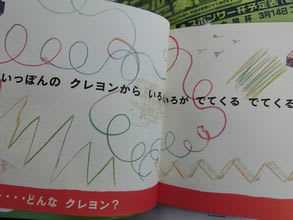 スポンサー杯予定表
3月14日
いっぽんの クレヨンから いろいろが でてくる でてくる
・・・どんな クレヨン？